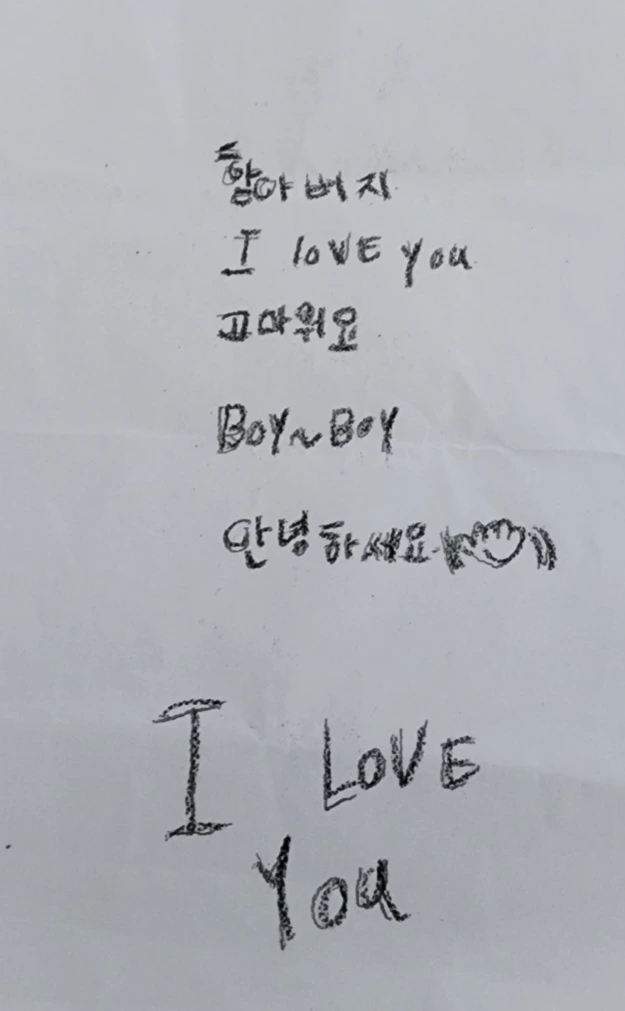 함아버지
I loVE you
고마워요
BoY~BoY
안녕하세요
I LoVE
You